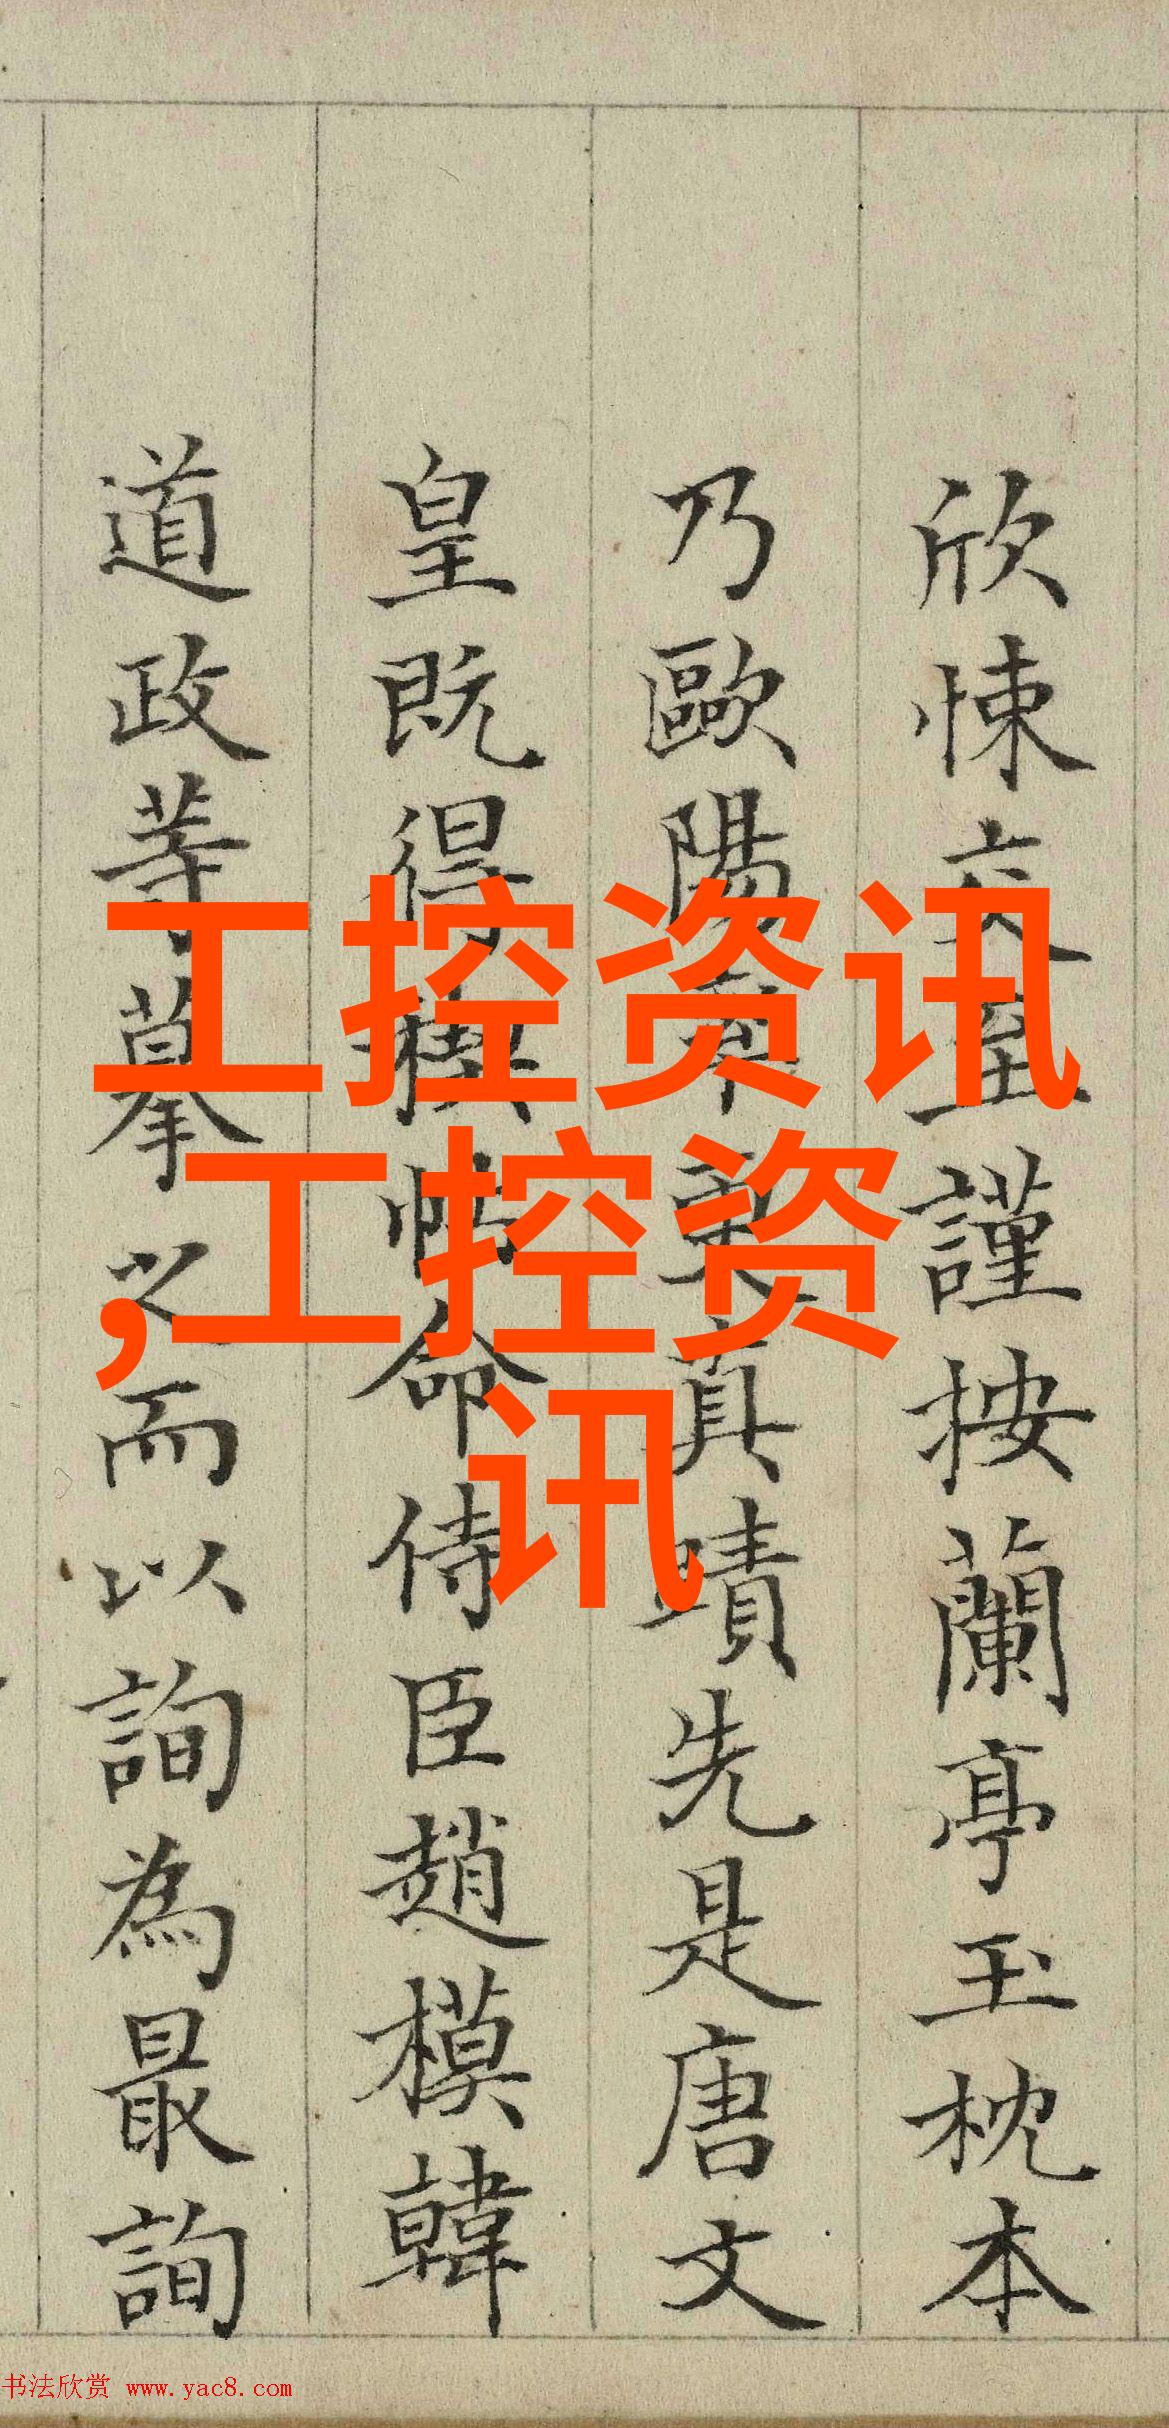 欣悚交至謹按蘭亭玉枕本
乃歐陽率更真蹟先是唐文
皇既得禊帖命侍臣趙模韓
道政等摹之而以詢為最詢
工控资讯
,工控资
讯
书法欣赏 www.yac8.com